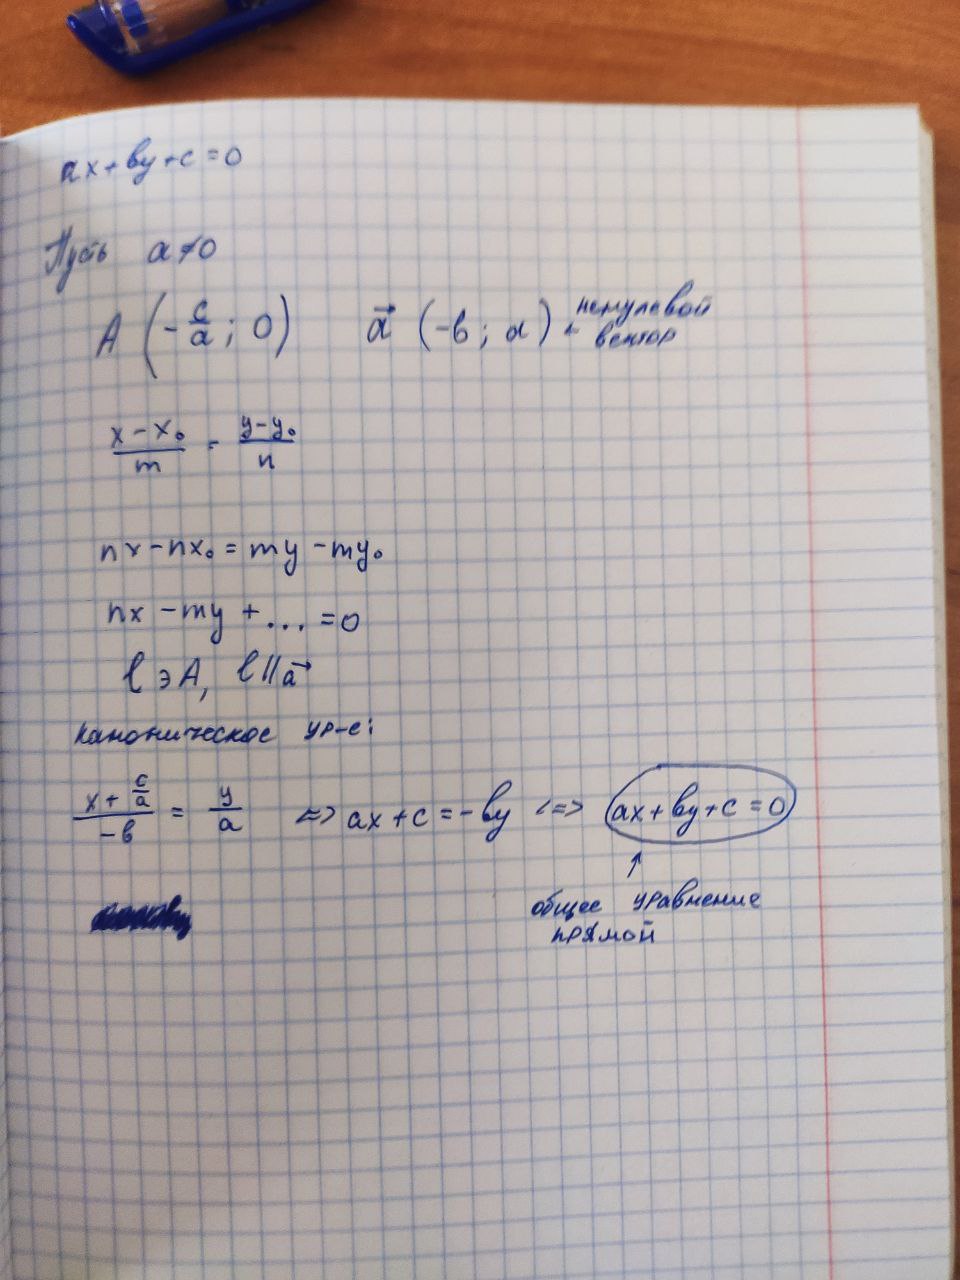 ax + by + c = 0
Пусть a ≠ 0
A (-c/a ; 0) a⃗ (-b ; a) ← ненулевой вектор
(x - x₀)/m = (y - y₀)/n
nx - nx₀ = my - my₀
nx - my + ... = 0
l ∋ A, l || a⃗
каноническое ур-е:
(x + c/a)/(-b) = y/a <=> ax + c = -by <=> ax + by + c = 0
↑
общее уравнение
прямой